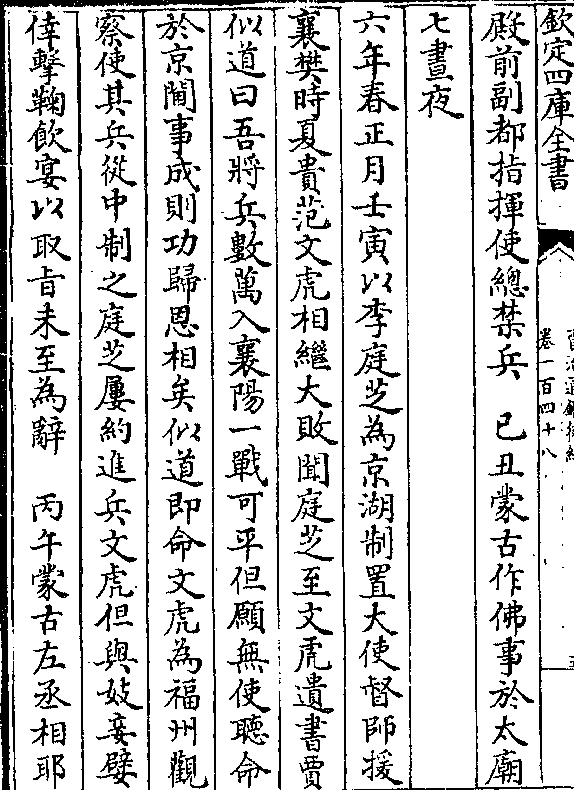 欽定四庫全書
卷一百四十八
殿前副都指揮使總禁兵　己丑蒙古作佛事於太廟
七晝夜
六年春正月壬寅以李庭芝為京湖制置大使督師援
襄樊時夏貴范文虎相繼大敗聞庭芝至文虎遺書賈
似道曰吾將兵數萬入襄陽一戰可平但願無使聽命
於京閫事成則功歸恩相矣似道即命文虎為福州觀
察使其兵從中制之庭芝屢約進兵文虎但與妓妾嬖
倖擊鞠飲宴以取旨未至為辭　丙午蒙古左丞相耶